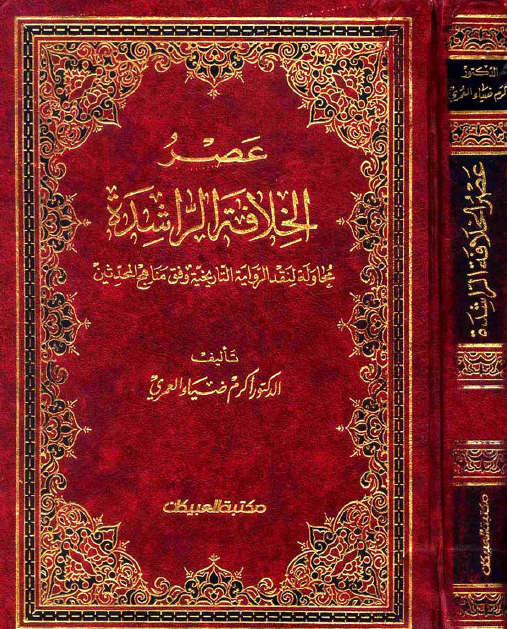 عَصْرُ
الخِلَافَةِ الرَّاشِدَةِ
مُحَاوَلَة لِنَقد الرِوَايَة التَّاريخيَّة وَفق مَنَاهج المُحَدّثين
تَأليف
الدكتور أكرم ضياء العمري
مكتبة العبيكان
الدكتور
أكرم ضياء العمري
عَصْرُ الخِلَافَةِ الرَّاشِدَةِ
مكتبة العبيكان